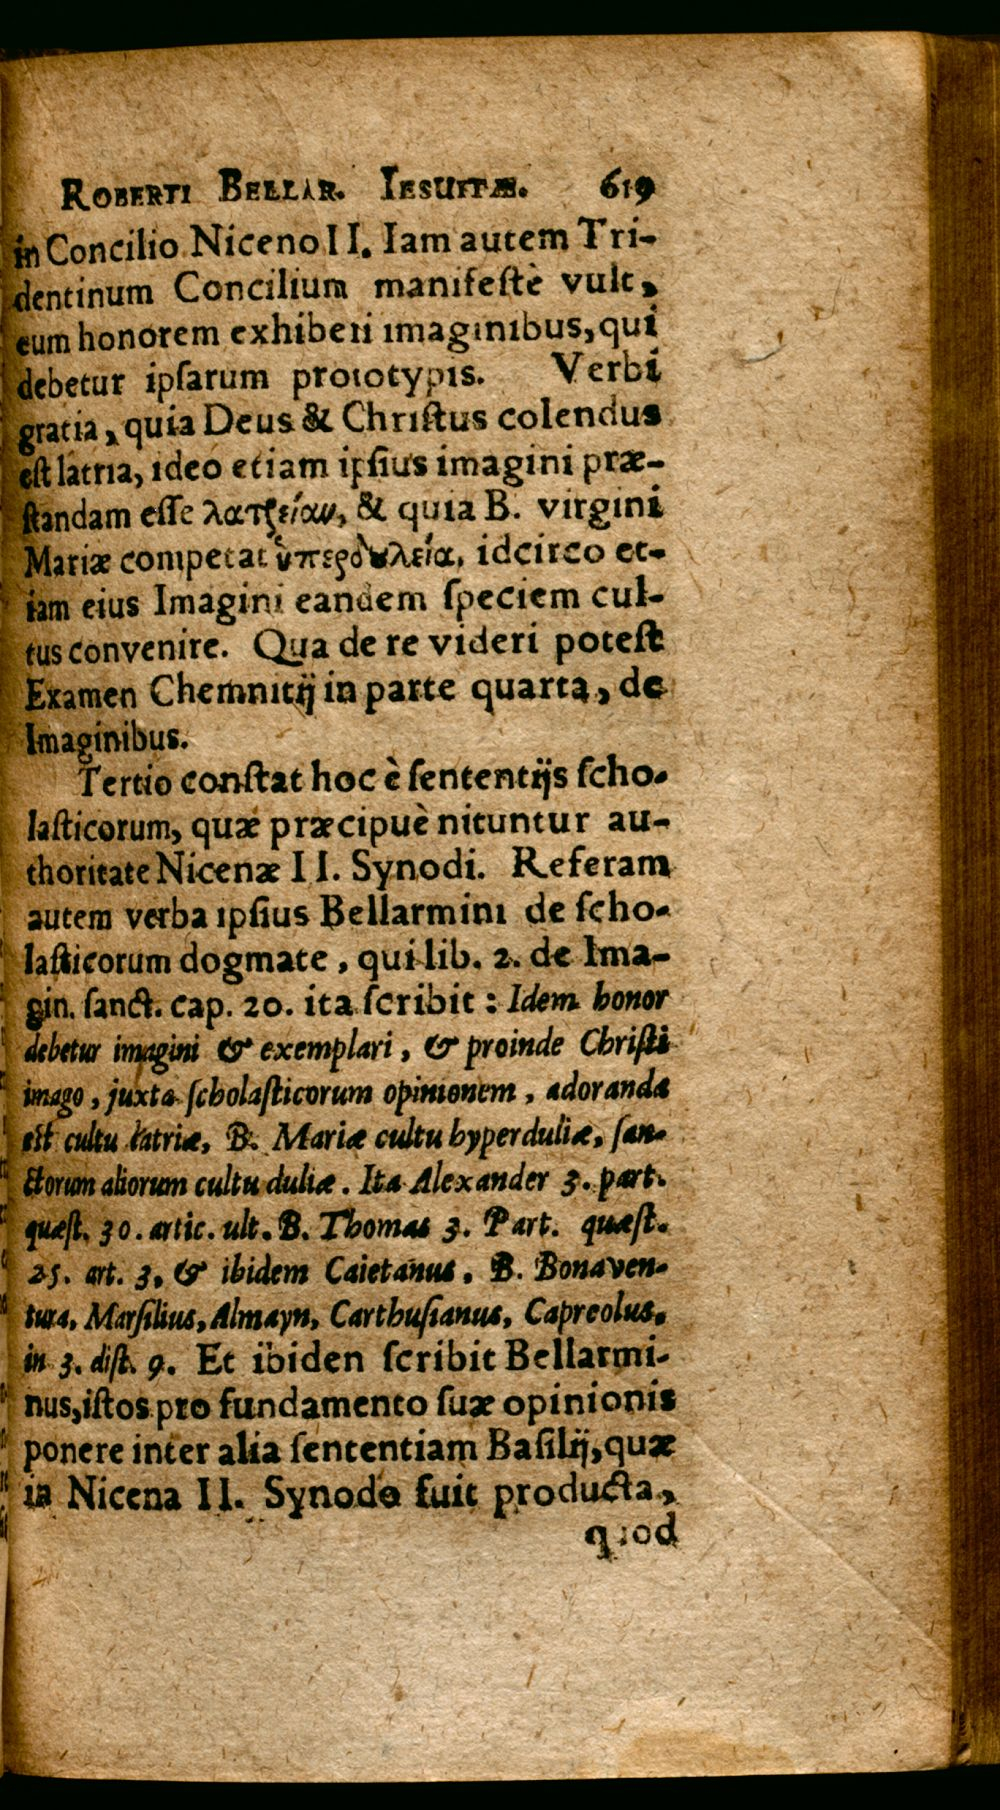 ROBERTI BELLAR. IESUITÆ. 619
in Concilio Niceno II. Iam autem Tri-
dentinum Concilium manifestè vult,
eum honorem exhiberi imaginibus, qui
debetur ipsarum prototypis. Verbi
gratia, quia Deus & Christus colendus
est latria, ideo etiam ipsius imagini præ-
standam esse λατρείαν, & quia B. virgini
Mariæ competat ὑπερδουλεία, idcirco et-
iam eius Imagini eandem speciem cul-
tus convenire. Qua de re videri potest
Examen Chemnitij in parte quarta, de
Imaginibus.
Tertio constat hoc è sententijs scho-
lasticorum, quæ præcipuè nituntur au-
thoritate Nicenæ II. Synodi. Referam
autem verba ipsius Bellarmini de scho-
lasticorum dogmate, qui lib. 2. de Ima-
gin. sanct. cap. 20. ita scribit: Idem honor
debetur imagini & exemplari, & proinde Christi
imago, juxta scholasticorum opinionem, adoranda
est cultu latriæ, B. Mariæ cultu hyperduliæ, san-
ctorum aliorum cultu duliæ. Ita Alexander 3. part.
quæst. 30. artic. ult. B. Thomas 3. Part. quæst.
25. art. 3. & ibidem Caietanus, B. Bonaven-
tura, Marsilius, Almayn, Carthusianus, Capreolus,
in 3. dist. 9. Et ibiden scribit Bellarmi-
nus, istos pro fundamento suæ opinionis
ponere inter alia sententiam Basilij, quæ
in Nicena II. Synodo fuit producta,
quod